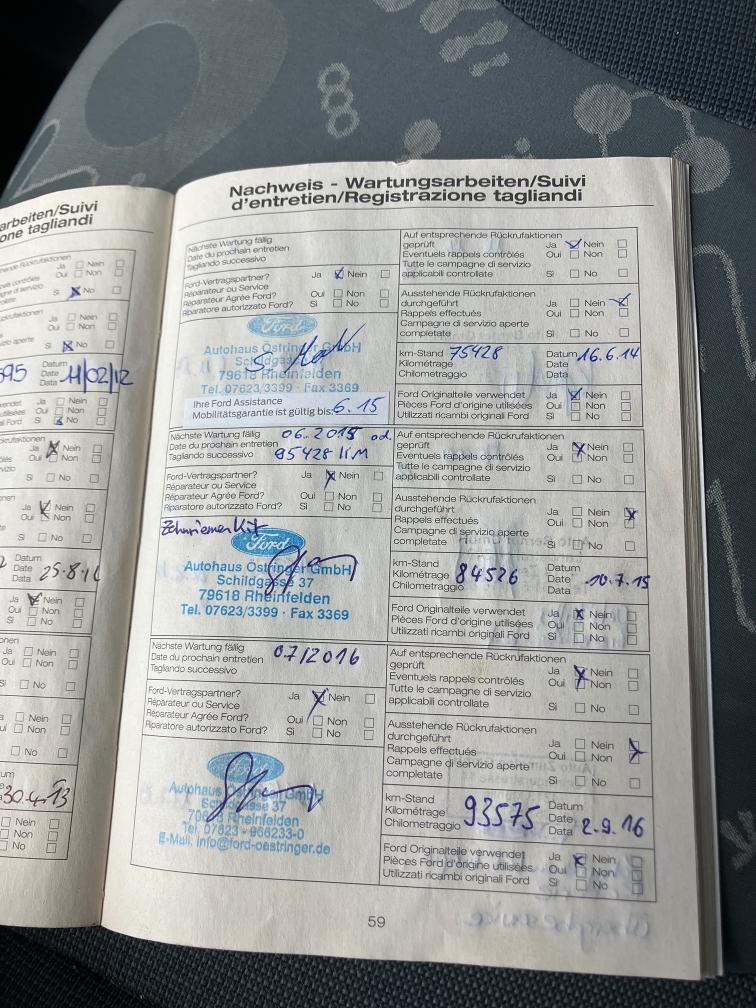 arbeiten/Suivi
one tagliandi
Ja Nein
Oui Non
Si No
595 Datum
Date
Data 11/02/12
Ja Nein
Oui Non
Si No
Ja Nein
Oui Non
Si No
Ja Nein
Oui Non
Datum
Date
Data
Ja Nein
Oui Non
Si No
Ja Nein
Oui Non
Si No
Nein
Non
No
30.4.13
Nein
Non
No
Nachweis - Wartungsarbeiten/Suivi
d'entretien/Registrazione tagliandi
Nächste Wartung fällig
Date du prochain entretien
Tagliando successivo
Ford-Vertragspartner? Ja Nein
Réparateur ou Service
Réparateur Agrée Ford? Oui Non
Riparatore autorizzato Ford? Si No
Ford
Autohaus Östringer GmbH
Schildgasse
79618 Rheinfelden
Tel. 07623/3399 · Fax 3369
Ihre Ford Assistance
Mobilitätsgarantie ist gültig bis: 6.15
Auf entsprechende Rückrufaktionen
geprüft Ja Nein
Eventuels rappels contrôlés Oui Non
Tutte le campagne di servizio
applicabili controllate Si No
Ausstehende Rückrufaktionen
durchgeführt Ja Nein
Rappels effectués Oui Non
Campagne di servizio aperte
completate Si No
km-Stand 75428 Datum 16.6.14
Kilométrage Date
Chilometraggio Data
Ford Originalteile verwendet Ja Nein
Pièces Ford d'origine utilisées Oui Non
Utilizzati ricambi originali Ford Si No
Nächste Wartung fällig 06.2015 od.
Date du prochain entretien
Tagliando successivo 95428 KM
Ford-Vertragspartner? Ja Nein
Réparateur ou Service
Réparateur Agrée Ford? Oui Non
Riparatore autorizzato Ford? Si No
Zahnriemen Kit
Ford
Autohaus Östringer GmbH
Schildgasse 37
79618 Rheinfelden
Tel. 07623/3399 · Fax 3369
Auf entsprechende Rückrufaktionen
geprüft Ja Nein
Eventuels rappels contrôlés Oui Non
Tutte le campagne di servizio
applicabili controllate Si No
Ausstehende Rückrufaktionen
durchgeführt Ja Nein
Rappels effectués Oui Non
Campagne di servizio aperte
completate Si No
km-Stand Datum
Kilométrage 84526 Date 10.7.15
Chilometraggio Data
Ford Originalteile verwendet Ja Nein
Pièces Ford d'origine utilisées Oui Non
Utilizzati ricambi originali Ford Si No
Nächste Wartung fällig
Date du prochain entretien 07/2016
Tagliando successivo
Ford-Vertragspartner? Ja Nein
Réparateur ou Service
Réparateur Agrée Ford? Oui Non
Riparatore autorizzato Ford? Si No
Ford
Autohaus Östringer GmbH
Schildgasse 37
Rheinfelden
Tel. 07623 - 966233-0
E-Mail: info@ford-oestringer.de
Auf entsprechende Rückrufaktionen
geprüft Ja Nein
Eventuels rappels contrôlés Oui Non
Tutte le campagne di servizio
applicabili controllate Si No
Ausstehende Rückrufaktionen
durchgeführt Ja Nein
Rappels effectués Oui Non
Campagne di servizio aperte
completate Si No
km-Stand Datum
Kilométrage 93575 Date
Chilometraggio Data 2.9.16
Ford Originalteile verwendet Ja Nein
Pièces Ford d'origine utilisées Oui Non
Utilizzati ricambi originali Ford Si No
59